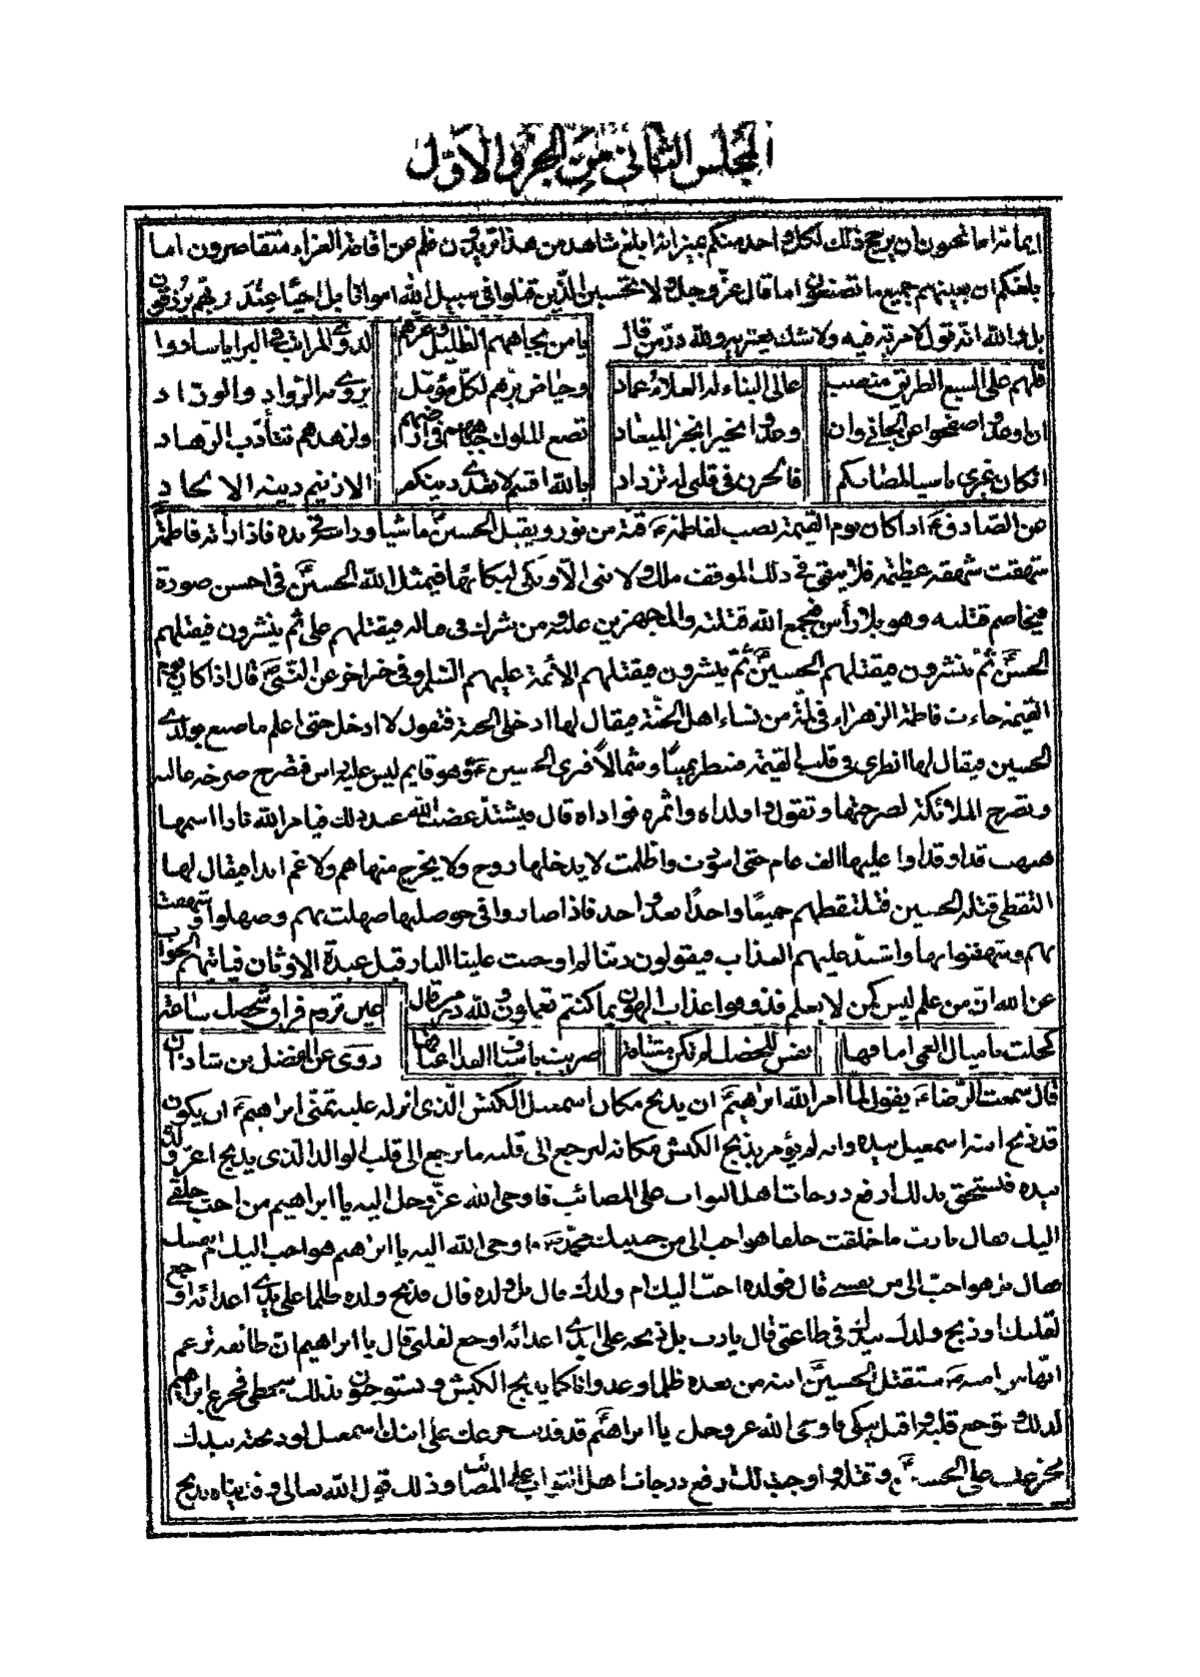 المجلس الثاني من الجزو الاول
ايما تراما تحبون ان يرجح ذلك لكل واحد منكم من هذا فلم عن اقامة العزاء متقاصرون اما
بلغكم ان بعينهم جميع ما تصنعون اما قال عز وجل ولا تحسبن الذين قتلوا فى سبيل الله امواتا بل احياء عند ربهم يرزقون
بلى والله انه قول لا مرية فيه ولا شك يعتريه ولله در من قال
يا من بجاههم الظليل وعزهم لذوى المراتب فى البرايا سادوا
فلهم على السبع الطرايق منصب عالى البناء له العلاء عماد
وحياض برهم لكل مؤمل يروى به الرواد والوراد
ان وعدوا صفحوا عن الجانى وان وعدوا بخير انجز الميعاد
تضع الملوك جباههم ولزهدهم تتأدب الزهاد
ان كان غيرى ناسيا لمصابكم فالحزن فى قلبى له تزداد
بالله اقسم لا دينكم الا دينه الالحاد
عن الصادق ع اذا كان يوم القيمة نصب لفاطمة ع قبة من نور ويقبل الحسين ع ماشيا وراسه فى يده فاذا رأته فاطمة
شهقت شهقة عظيمة فلا يبقى فى ذلك الموقف ملك ولا نبى الا وبكى لبكائها فيمثل الله الحسين ع فى احسن صورة
فيخاصم قتلته وهو بلا رأس فيجمع الله قتلته والمجهزين عليه ومن شرك فى قتله فيقتلهم على ثم ينشرون فيقتلهم
الحسن ع ثم ينشرون فيقتلهم الحسين ع ثم ينشرون فيقتلهم الائمة عليهم السلم وفى خبر اخر عن النبى ص قال اذا كان يوم
القيمة جاءت فاطمة الزهراء فى لمة من نساء اهل الجنة فيقال لها ادخلى الجنة فتقول لا ادخل حتى اعلم ما صنع بولدى
الحسين فيقال لها انظرى فى قلب القيمة فتنظر يمينا وشمالا فترى الحسين ع وهو قايم ليس عليه راس فتصرخ صرخة عالية
وتصرخ الملائكة لصرختها وتقول وا ولداه وا ثمرة فؤاداه قال فيشتد غضب الله عند ذلك فيامر الله نارا اسمها
هبهب قد اوقد عليها الف عام حتى اسودت واظلمت لا يدخلها روح ولا يخرج منها هم ولا غم ابدا فيقال لها
التقطى قتلة الحسين فتلتقطهم جميعا واحدا بعد واحد فاذا صاروا فى حوصلتها صهلت بهم وصهلوا بها وشهقت
بهم وشهقوا بها واشتد عليهم العذاب فيقولون ربنا لم اوجبت علينا النار قبل عبدة الاوثان فياتيهم الجواب
عن الله ان من علم ليس كمن لا يعلم فذوقوا عذاب الهون بما كنتم تعملون ولله در من قال
كحلت باميال العمى اماقها
روى عن الفضل بن شاذان
قال سمعت الرضا ع يقول لما امر الله ابراهيم ع ان يذبح مكان اسمعيل الكبش الذى انزله عليه تمنى ابراهيم ع ان يكون
قد ذبح ابنه اسمعيل بيده وانه لم يؤمر بذبح الكبش مكانه ليرجع الى قلبه ما يرجع الى قلب الوالد الذى يذبح اعز ولده
بيده فيستحق بذلك ارفع درجات اهل الثواب على المصائب فاوحى الله عز وجل اليه يا ابراهيم من احب خلقى
اليك فقال يا رب ما خلقت خلقا هو احب الى من حبيبك محمد ص فاوحى الله اليه يا ابراهيم هو احب اليك ام نفسك
فقال بل هو احب الى من نفسى قال فولده احب اليك ام ولدك قال بل ولده قال فذبح ولده ظلما على يدى اعدائه اوجع
لقلبك او ذبح ولدك بيدك فى طاعتى قال يا رب بل ذبحه على ايدى اعدائه اوجع لقلبى قال يا ابراهيم ان طائفة تزعم
انها من امة محمد ستقتل الحسين ع ابنه من بعده ظلما وعدوانا كما يذبح الكبش ويستوجبون بذلك سخطى فجزع ابراهيم
لذلك وتوجع قلبه واقبل يبكى فاوحى الله عز وجل يا ابراهيم قد فديت جزعك على ابنك اسمعيل لو ذبحته بيدك
بجزعك على الحسين ع وقتله واوجبت لك ارفع درجات اهل الثواب على المصائب وذلك قول الله تعالى وفديناه بذبح